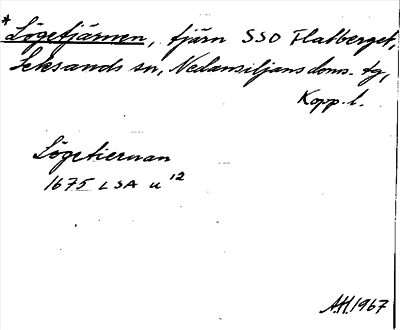 *
Lögetjärnen, tjärn SSO Flatberget,
Leksands sn, Nedansiljans doms. tg,
Kopp. l.
Lögetiernan
1675 LSA u 12
A.H. 1967